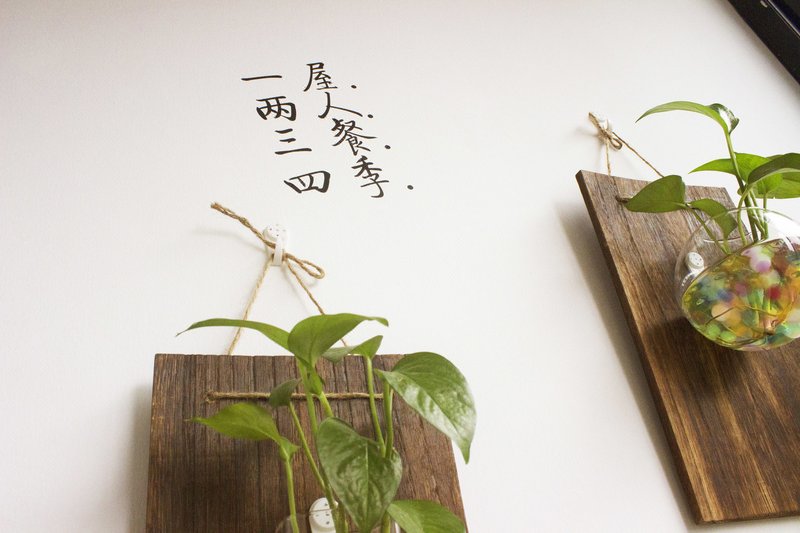 一屋.
两人.
三餐.
四季.